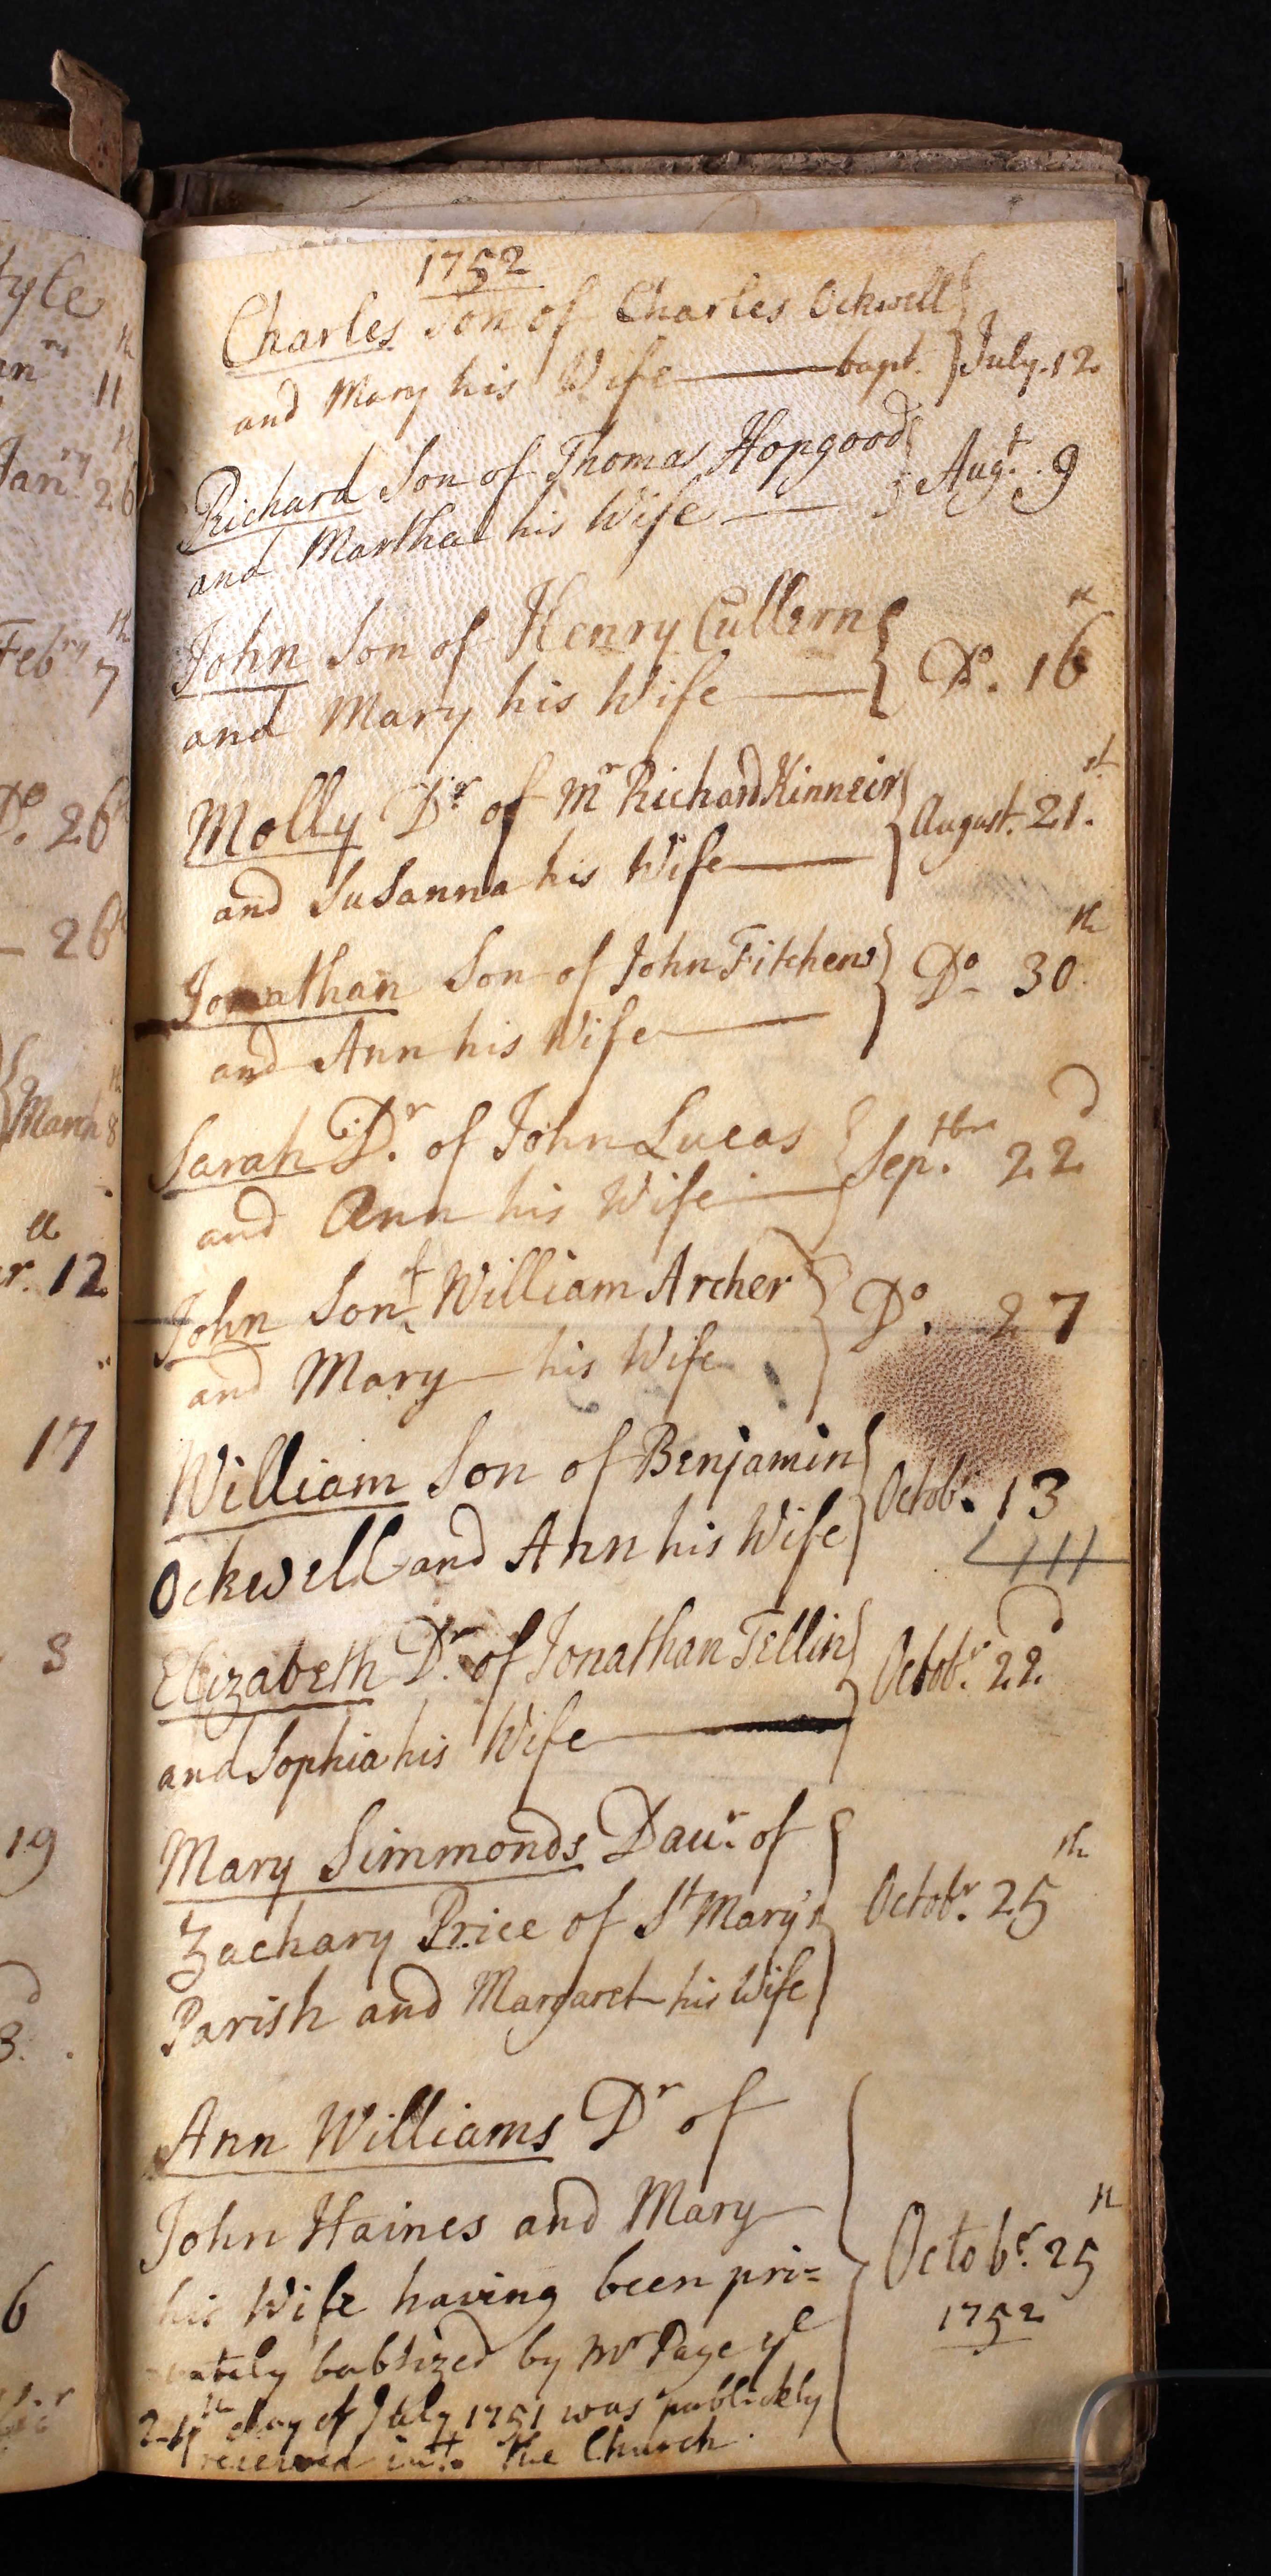 1752
Charles Son of Charles Ockwell
and Mary his Wife bapt. } July. 12.
Richard Son of Thomas Hopgood
and Martha his Wife } Augt. 9
John Son of Henry Cullern
and Mary his Wife } Do. 16th
Molly Dr. of Mr Richard Kinneir
and Susanna his Wife } August. 21st.
Jonathan Son of John Fitchens
and Ann his Wife } Do 30th
Sarah Dr. of John Lucas
and Ann his Wife } Septbr. 22d
John Son of William Archer
and Mary his Wife } Do. 27
William Son of Benjamin
Ockwell and Ann his Wife } Octobr. 13
Elizabeth Dr. of Jonathan Tellin
and Sophia his Wife } Octobr. 22d
Mary Simmonds Daur. of
Zachary Price of St Mary's
Parish and Margaret his Wife } Octobr. 25th
Ann Williams Dr of
John Haines and Mary
his Wife having been pri=
vately babtized by Mr Page ye
day of July 1751 was publickly
received into the Church.
Octobr. 25th
1752
tyle
11th
Janry 26th
Febry 7th
Do. 26th
26th
March 8th
r. 12th
17
8
19
3.
6